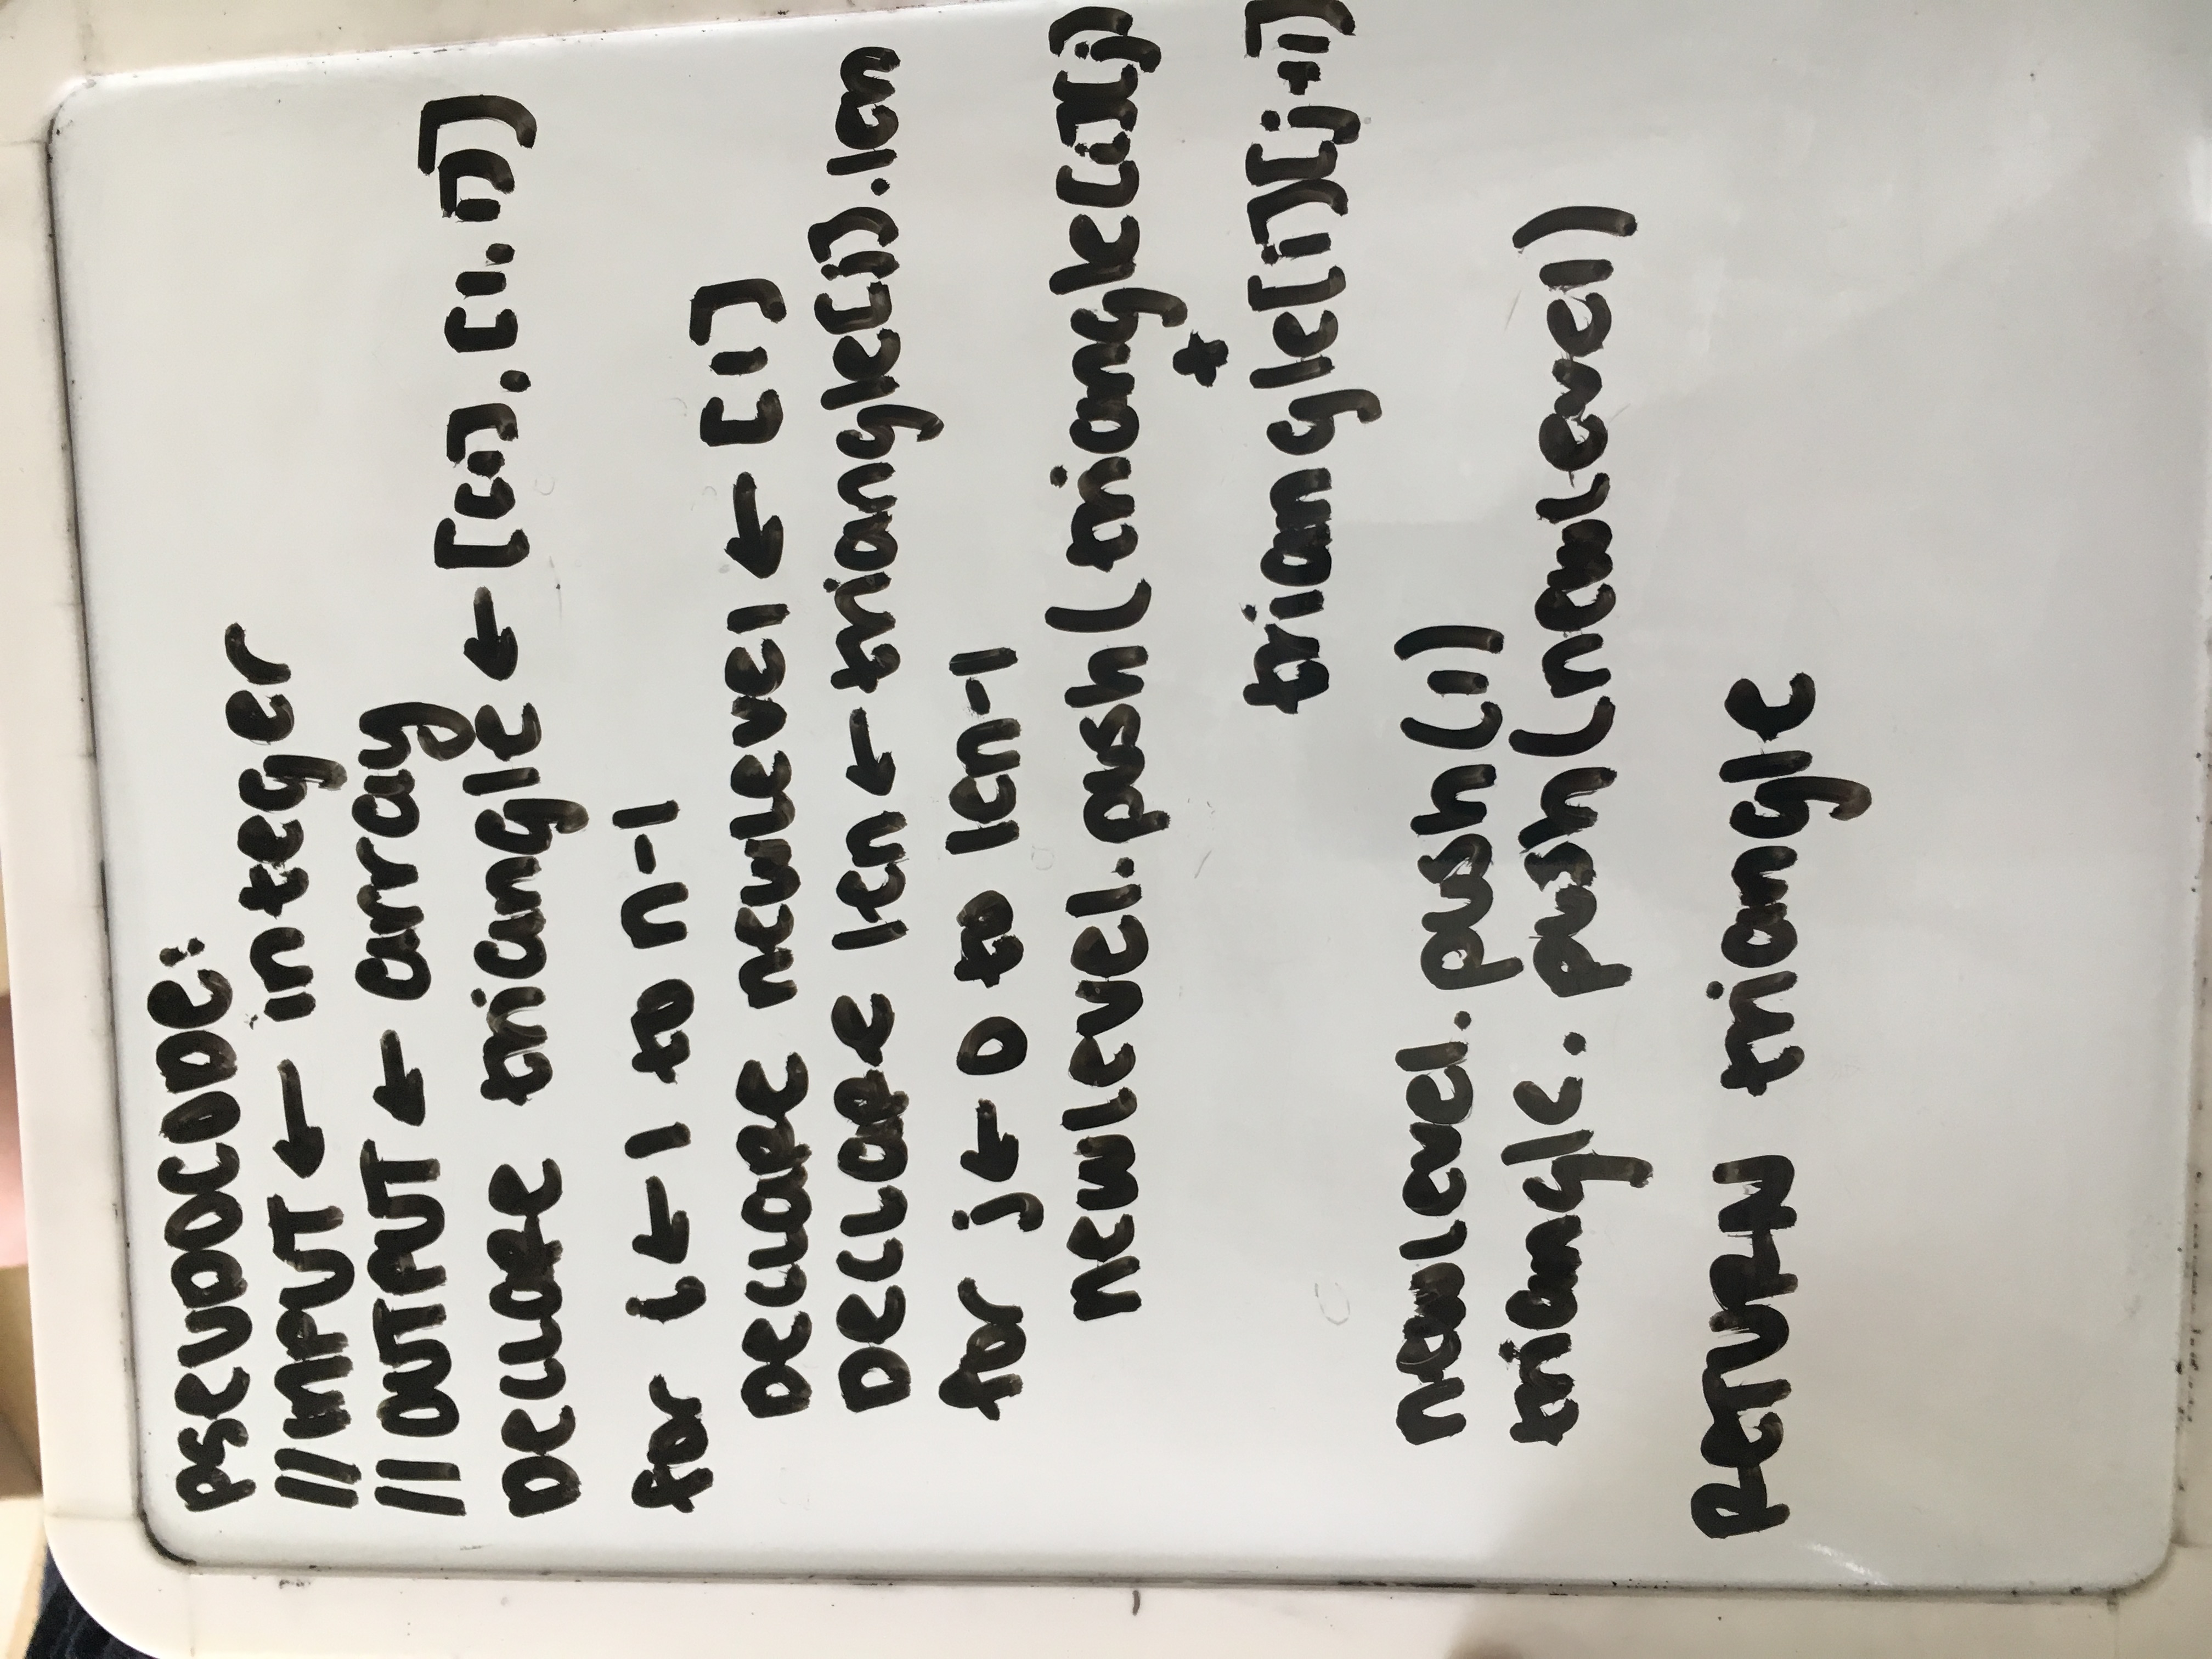 PSEUDOCODE:
//INPUT ← integer
//OUTPUT ← array
DECLARE triangle ← [[1], [1, 1]]
for i ← 1 to n-1
DECLARE newlevel ← [1]
DECLARE len ← triangle[i].len
for j ← 0 to len-1
newlevel.push(triangle[i][j]
+
triangle[i][j+1]
newlevel.push(1)
triangle.push(newlevel)
RETURN triangle